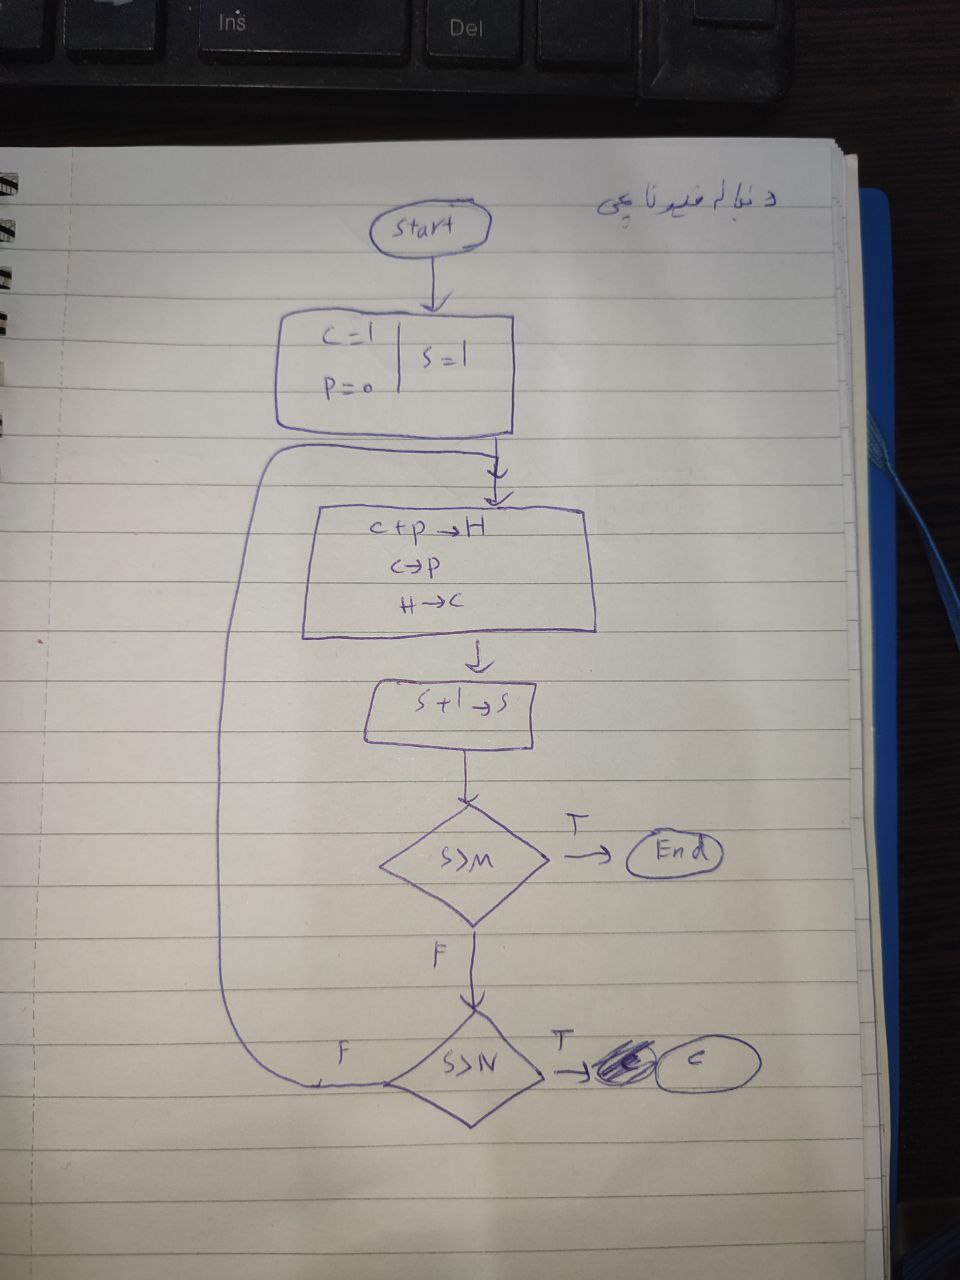 Ins
Del
دنباله فیبوناچی
start
C=1
P=0
S=1
C+P→H
C→P
H→C
S+1→S
S>M
T
End
F
S>N
T
C
F